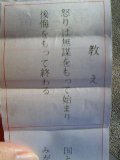 教え
怒りは無謀をもって始まり
後悔をもって終わる
国と
みだ